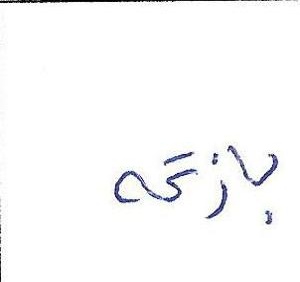 بازگه